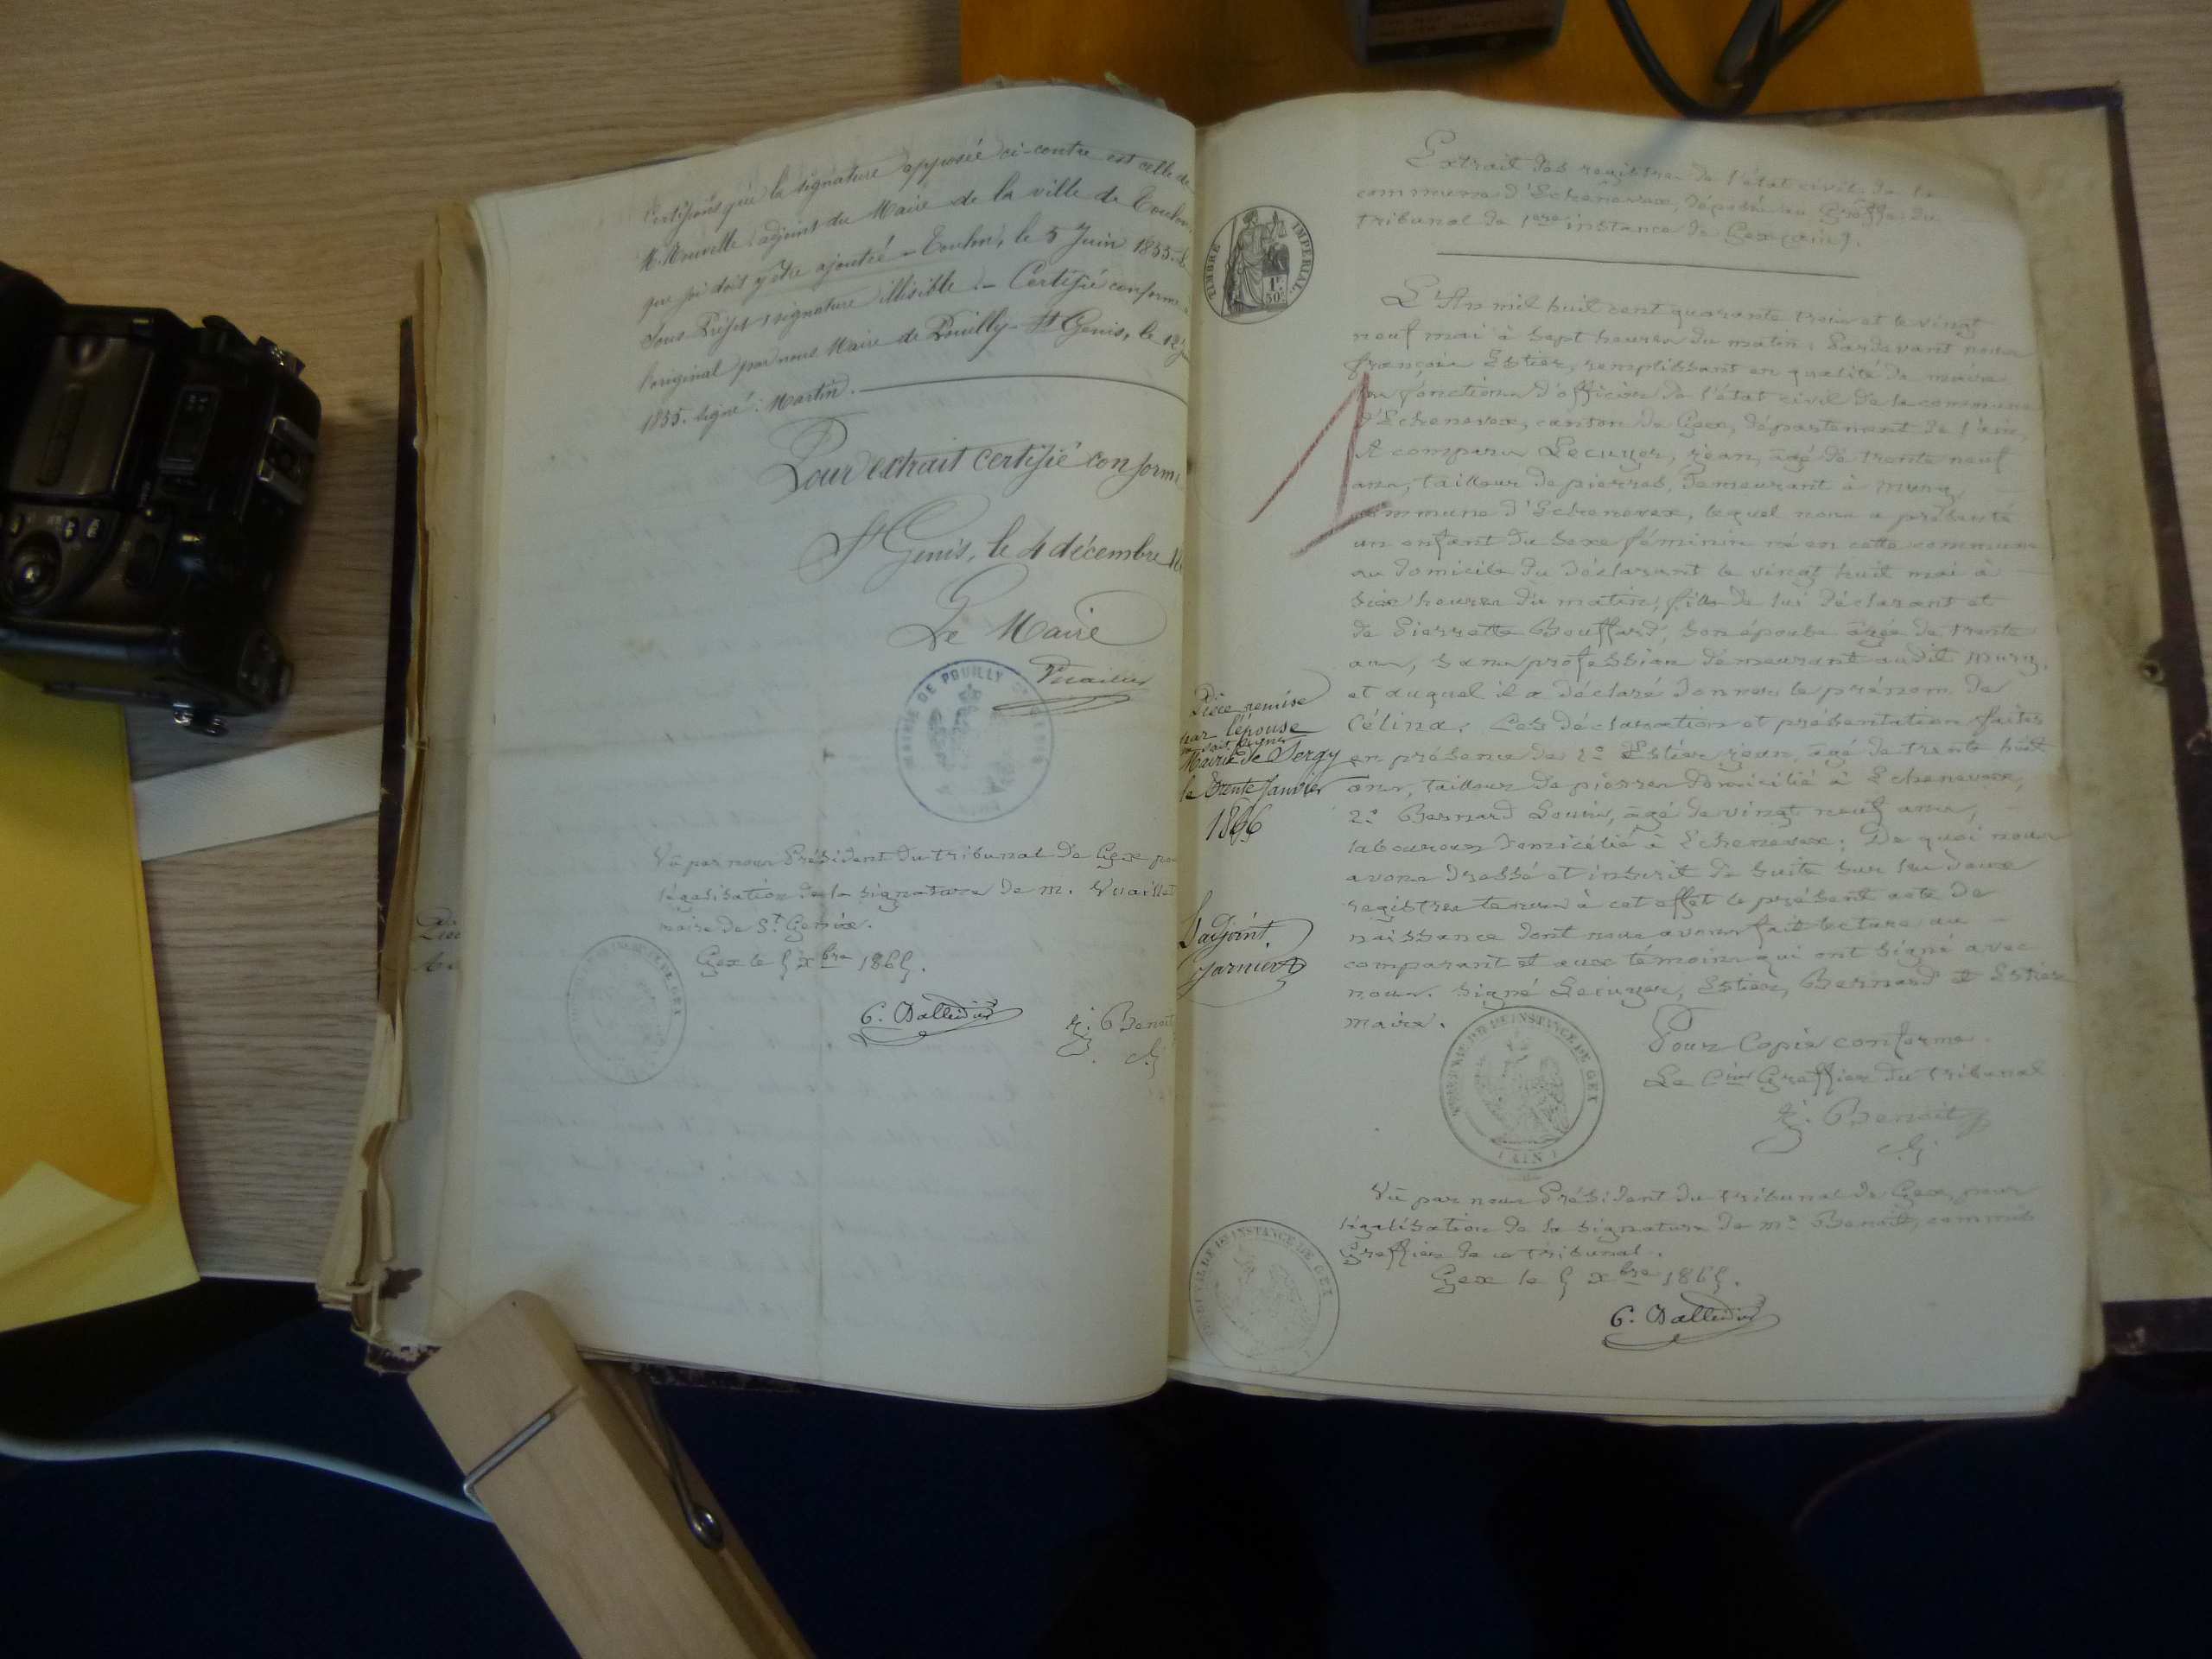 Certifions que la signature apposée ci-contre est celle de
M. Nouvelle, adjoint du Maire de la ville de Toulon
que foi doit y être ajoutée - Toulon, le 5 Juin 1855. Le
Sous-Préfet, signature illisible. - Certifié conforme à
l'original par nous Maire de Pouilly-St Genis, le 12
1855. Signé: Martin.
Pour extrait certifié conforme
St Genis, le 4 décembre 18
Le Maire
Vuaillet
MAIRIE DE POUILLY ST GENIS
Vu par nous Président du tribunal de Gex pour
légalisation de la signature de M. Vuaillet
maire de St Genix.
Gex le 5 xbre 1865.
TIMBRE IMPERIAL
1F 50c
Extrait des registres de l'état civil de la
commune d'Echenevex, déposés au Greffe du
tribunal de 1ere instance de Gex (ain).
L'An mil huit cent quarante trois et le vingt
neuf mai à sept heures du matin: Pardevant nous
françois Estier, remplissant en qualité de maire
les fonctions d'officier de l'état civil de la commune
d'Echenevex, canton de Gex, département de l'ain,
A comparu Lecuyer, jean, âgé de trente neuf
ans, tailleur de pierres, demeurant à Mury
commune d'Echenevex, lequel nous a présenté
un enfant du sexe féminin né en cette commune
au domicile du déclarant le vingt huit mai à
six heures du matin, fille de lui déclarant et
de Pierrette Bouffard, son épouse âgée de trente
ans, sans profession demeurant audit Mury,
et auquel il a déclaré donner le prénom de
Célina. Ces déclaration et présentation faites
en présence de 1º Estier jean, âgé de trente huit
ans, tailleur de pierres domicilié à Echenevex,
2º Bernard Louis, âgé de vingt neuf ans,
laboureur domicilié à Echenevex; De quoi nous
avons dressé et inscrit de suite sur les deux
registres tenus à cet effet le présent acte de
naissance dont nous avons fait lecture au
comparant et aux témoins qui ont signé avec
nous. Signé Lecuyer, Estier, Bernard et Estier
maire.
Pièce remise
par l'épouse
Mairie de Sergy
le trente Janvier
1866
L'adjoint.
Pour Copie conforme.
Le Cis Greffier du tribunal
J. Benoit
TRIBUNAL DE 1re INSTANCE DE GEX
(AIN)
Vu par nous Président du tribunal de Gex, pour
légalisation de la signature de Mr Benoit, commis
Greffier de ce tribunal.
Gex le 5 xbre 1865.